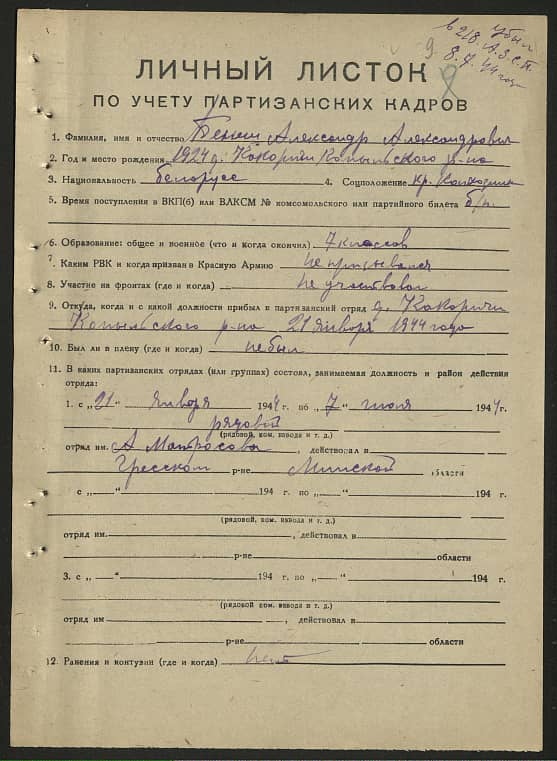 убыл
в 218 А.З.С.П.
8.7.44 года
9
ЛИЧНЫЙ ЛИСТОК
ПО УЧЕТУ ПАРТИЗАНСКИХ КАДРОВ
1. Фамилия, имя и отчество Александр Александрович
2. Год и место рождения 1924 д. Кокоричи Копыльского р-на
3. Национальность белорусс 4. Соцположение кр. Колхозник
5. Время поступления в ВКП(б) или ВЛКСМ № комсомольского или партийного билета б/п.
6. Образование: общее и военное (что и когда окончил) 7 классов
7. Каким РВК и когда призван в Красную Армию не призывался
8. Участие на фронтах (где и когда) не участвовал
9. Откуда, когда и с какой должности прибыл в партизанский отряд д. Кокоричи
Копыльского р-на 21 января 1944 года
10. Был ли в плену (где и когда) не был
11. В каких партизанских отрядах (или группах) состоял, занимаемая должность и район действия
отряда:
1. с „21“ января 1944 г. по „7“ июля 1944 г.
рядовой
(рядовой, ком. взвода и т. д.)
отряд им. А Матросова, действовал в
Гресском р-не Минской области
с „ “ 194 г. по „ “ 194 г.
(рядовой, ком. взвода и т. д.)
отряд им. , действовал в
р-не области
3. с „ “ 194 г. по „ “ 194 г.
(рядовой, ком. взвода и т. д.)
отряд им , действовал в
р-не области
12. Ранения и контузии (где и когда) нет